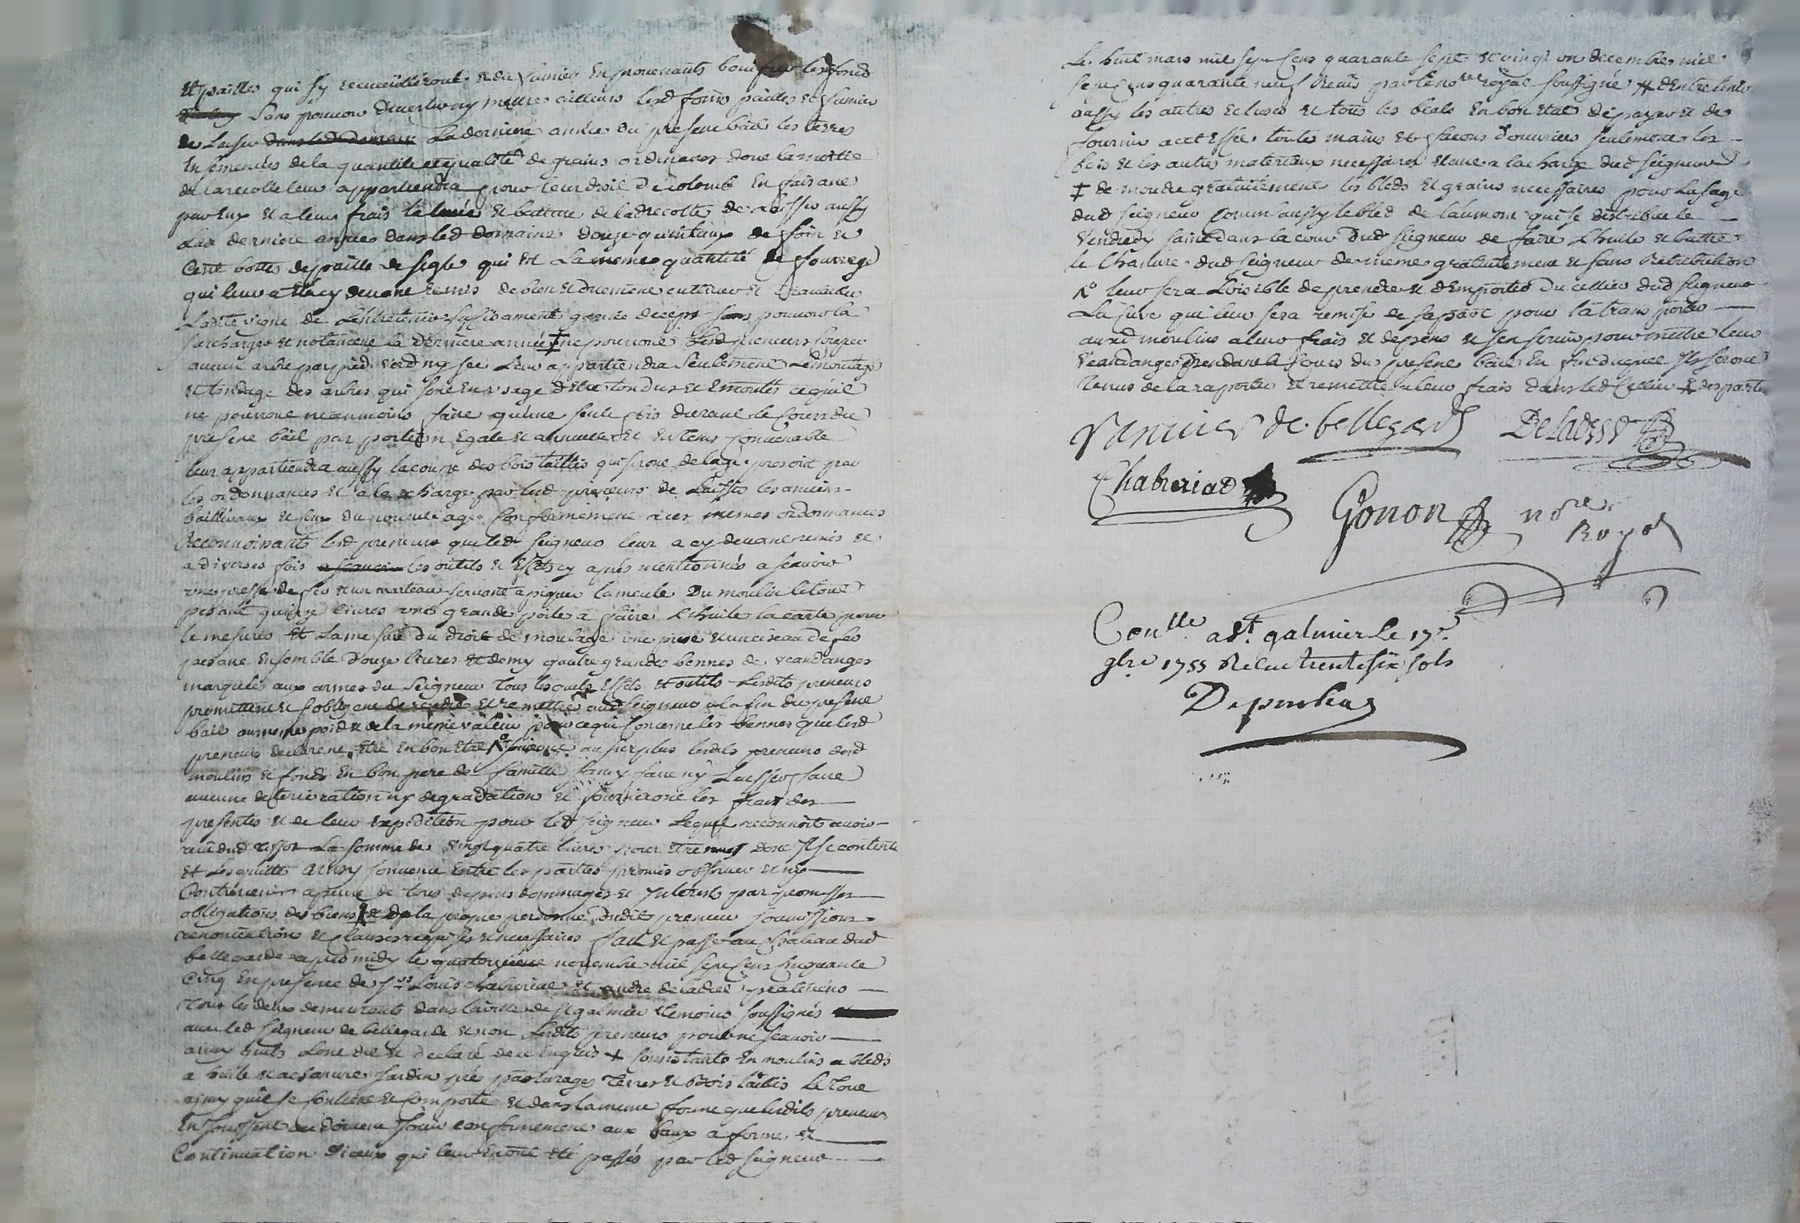 et pailles qui sy recueilliront et du fumier en provenants pour les fonds
sans pouvoir divertir ny mettre ailleurs lesd foins pailles et fumier
de laisser la derniere année du present bail les terres
en semences de la quantité et qualité de grains ordinaires dont la moitié
de la recolte leur appartiendra pour leur droit de colons en faisant
par eux et a leur frais et battre lad recolte de laisser aussy
lad derniere année dans led domaine douze quintaux de foin et
cent bottes de paille de segle qui est la meme quantité de fourrage
qui leur a été cy devant remis de bien et duement cultiver et travailler
ladite vigne de l'entretenir suffisament garnie de ceps sans pouvoir la
surcharger et notament la derniere année ‡ ne pourront lesd preneurs couper
aucun arbre par pied verd ny sec leur appartiendra seulement l'emontage
et tondage des arbres qui sont en usage d'etre tondus et emontés ce qu'il
ne pourront neanmoins faire qu'une seule fois durant le cours du
present bail par portion egale et annuelle et en tems convenable
leur appartiendra aussy la coupe des bois taillis qui seront de lage prescrit par
les ordonnances et a la charge par lesd preneurs de laisser les anciens
balliveaux et ceux du nouvel age conformement a ces mêmes ordonnances
Reconnoissants lesd preneurs que led seigneur leur a cy devant remis et
a diverses fois les outils et effets cy après mentionnés a scavoir
une presse de fer et un marteau servant a piquer la meule du moulin le tout
pesant quinze livres une grande poile à faire l'huile la carte pour
le mesurer et la mesure du droit de moulage une pese et un ciseau de fer
pesant ensemble douze livres et demy quatre grandes bennes de vandanges
marquées aux armes du seigneur tous lesquels effets et outils lesdits preneurs
promettent et s'obligent de rendre et remettre aud seigneur a la fin du present
bail au meme poid et de la même valeur pour ce qui concerne les bennes que lesd
preneurs declarent etre en bon etat au surplus lesdits preneurs desd
moulins et fonds en bon pere de famille sans y faire ny laisser faire
aucune deterioration ny degradation et fourniront les frais des
presentes et de leur expedition pour led seigneur lequel reconnoit avoir
receu dud la somme de vingt quatre livres pour etrennes dont il se contente
et les quitte ainsy convenu entre les parties promis observer et ny
contrevenir a peine de tous depens dommages et interets par promesses
obligations des biens et de la propre personne desdits preneurs soumissions
renonciations et clauses requises et necessaires fait et passé au chateau dud
bellegarde après midy le quatorzieme novembre mil sept cens cinquante
cinq en presence de sr Louis Chaberiad et andre
tous les deux demeurants dans la ville de st galmier temoins soussignés
avec led seigneur de bellegarde et non lesdits preneurs pour ne scavoir
ainsy qu'ils l'ont dit et declaré de ce enquis ‡ consistants en moulins a bleds
a huile et a chanvre jardin pré pasturages terres et bois taillis le tout
ainsy qu'il se contient et comporte et dans la meme forme que lesdits preneurs
en jouissent ou doivent jouir conformement aux baux a ferme et
continuation d'iceux qui leur en ont été passés par led seigneur
Le huit mars mil sept cens quarante sept et vingt un decembre mil
sept cens quarante neuf receus par le nore royal soussigné # d'entretenir
aussy les autres ecluses et tous les beals en bon etat de payer et de
fournir a cet effet toutes mains et facons d'ouvriers seulement les
bois et les autres materiaux necessaires etant a la charge dud seigneur
‡ de moudre gratuitement les bleds et grains necessaires pour l'usage
dud seigneur comm'aussy le bled de l'aumone qui se distribue le
vendredy saint dans la cour dud seigneur de faire l'huile et battre
le chanvre dud seigneur de meme gratuitement et sans retribution
leur sera loisible de prendre et d'emporter du cellier dud seigneur
la cuve qui leur sera remise de sa part pour la transporter
auxd moulins a leur frais et depens et s'en servir pour mettre leur
veandanges pendant le cours du present bail en fin duquel ils seront
tenus de la raporter et remettre a leur frais dans led cellier
Vanuier de bellegarde Deladret
Chaberiad
Gonon nore
Royal
Conllé a st galmier le 17e
9bre 1755 Receu trente six sols